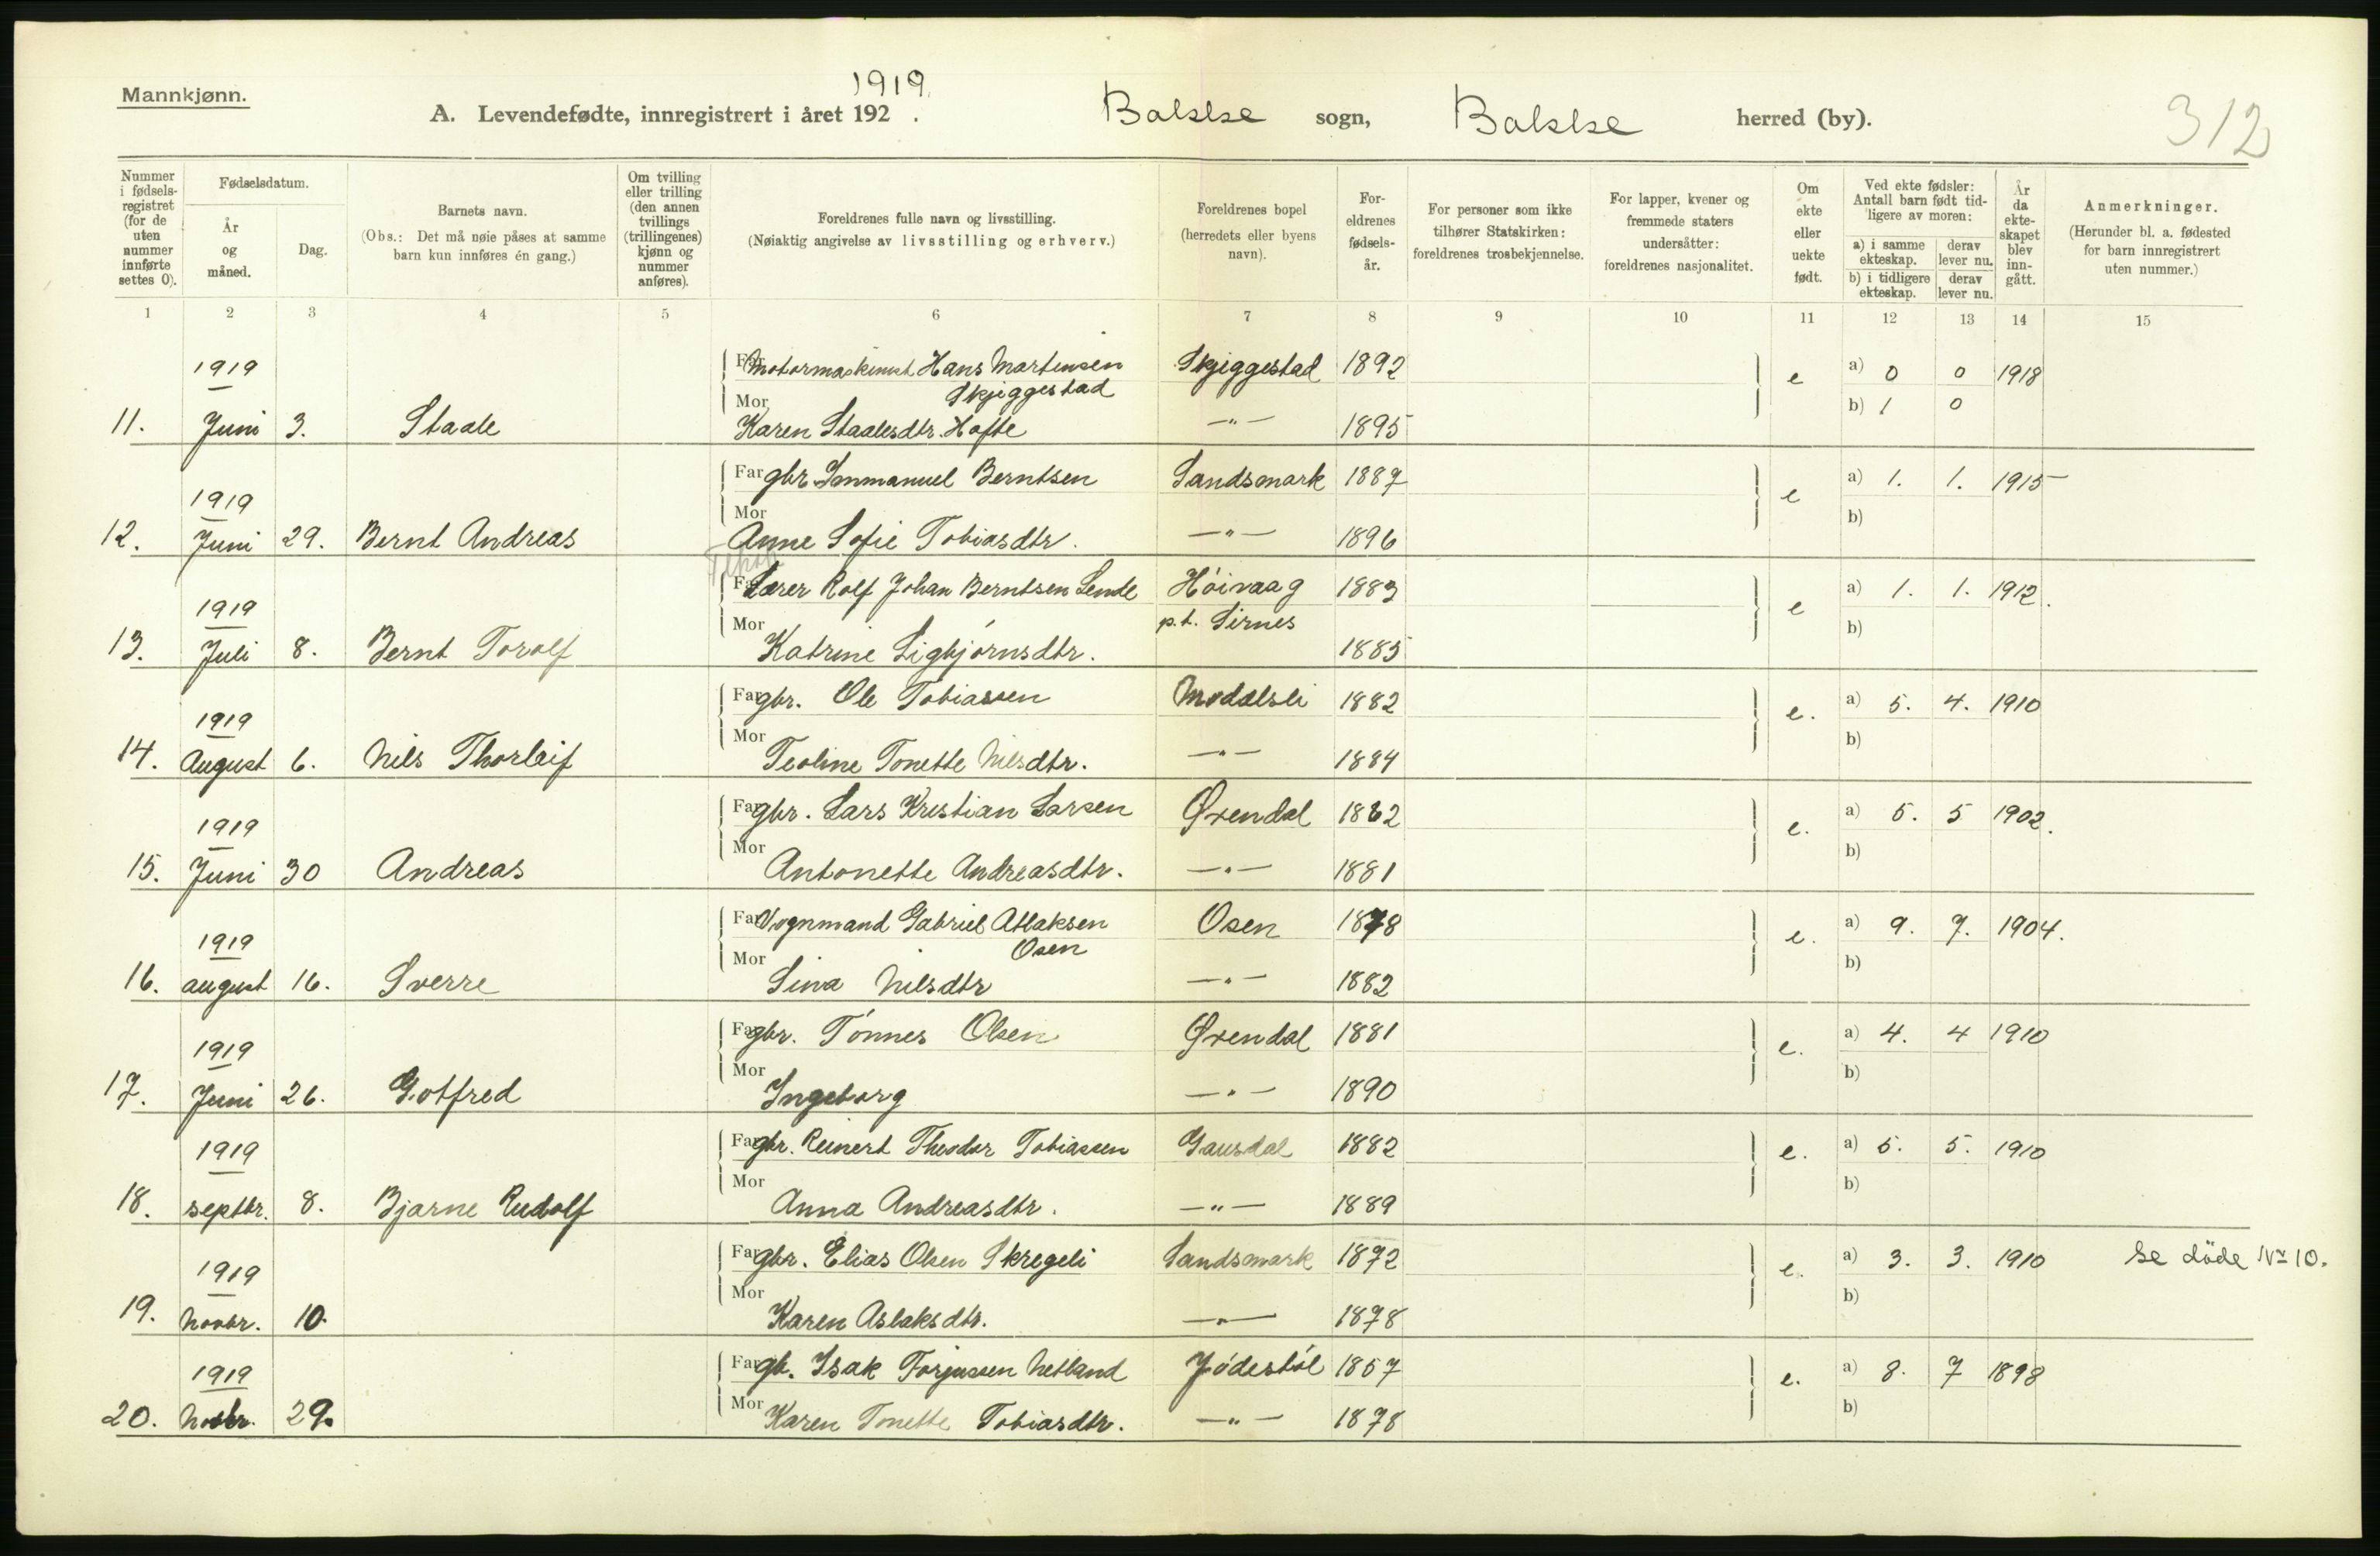 Mannkjønn.
1919.
A. Levendefødte, innregistrert i året 192 . Bakke sogn, Bakke herred (by).
312
Nummer i fødsels-registret (for de uten nummer innførte settes 0).
Fødselsdatum.
År og måned.
Dag.
Barnets navn.
(Obs.: Det må nøie påses at samme barn kun innføres én gang.)
Om tvilling eller trilling (den annen tvillings (trillingenes) kjønn og nummer anføres).
Foreldrenes fulle navn og livsstilling.
(Nøiaktig angivelse av livsstilling og erhverv.)
Foreldrenes bopel (herredets eller byens navn).
For-eldrenes fødsels-år.
For personer som ikke tilhører Statskirken: foreldrenes trosbekjennelse.
For lapper, kvener og fremmede staters undersåtter: foreldrenes nasjonalitet.
Om ekte eller uekte født.
Ved ekte fødsler: Antall barn født tid-ligere av moren:
a) i samme ekteskap.
derav lever nu.
b) i tidligere ekteskap.
derav lever nu.
År da ekte-skapet blev inn-gått.
Anmerkninger.
(Herunder bl. a. fødested for barn innregistrert uten nummer.)
1 2 3 4 5 6 7 8 9 10 11 12 13 14 15
1919 Far Motormaskinist Hans Martensen Skjiggestad 1892 e a) 0 0 1918
Skjiggestad
Mor b) 1 0
11. Juni 3. Staale Karen Staalesdtr. Hafte —"— 1895
Far gbr. Immanuel Berntsen Sandsmark 1887 e a) 1. 1. 1915
1919 Mor b)
12. Juni 29. Bernt Andreas Anne Sofie Tobiasdtr. —"— 1896
Far Lærer Rolf Johan Berntsen Lende Höivaag 1883 e a) 1. 1. 1912.
1919 Mor p.t. Sirnes b)
13. Juli 8. Bernt Torolf Katrine Sigbjörnsdtr. 1885
Far gbr. Ole Tobiassen Modalsli 1882 e. a) 5. 4. 1910
1919 Mor b)
14. August 6. Nils Thorleif Teoline Tonette Nilsdtr. —"— 1884
Far gbr. Lars Kristian Larsen Øxendal 1882 e. a) 5. 5 1902.
1919 Mor b)
15. Juni 30 Andreas Antonette Andreasdtr. —"— 1881
Far Vognmand Gabriel Atlaksen Osen 1878 e. a) 9. 7. 1904.
Osen
1919 Mor b)
16. august 16. Sverre Sina Nilsdtr —"— 1882
Far gbr. Tönnes Olsen Øxendal 1881 e. a) 4. 4 1910
1919 Mor b)
17. Juni 26. Gotfred Ingeborg —"— 1890
Far gbr. Reinert Theodor Tobiassen Gausdal 1882 e. a) 5. 5. 1910
1919 Mor b)
18. septbr. 8. Bjarne Rudolf Anna Andreasdtr. —"— 1889
Far gbr. Elias Olsen Skregeli Sandsmark 1872 e. a) 3. 3. 1910 se döde No 10.
1919 Mor b)
19. Novbr. 10. Karen Aslaksdtr. —"— 1878
Far gb. Isak Torjussen Netland Jödestöl 1857 e. a) 8. 7 1898
1919 Mor b)
20. Novbr. 29. Karen Tonette Tobiasdtr. —"— 1878